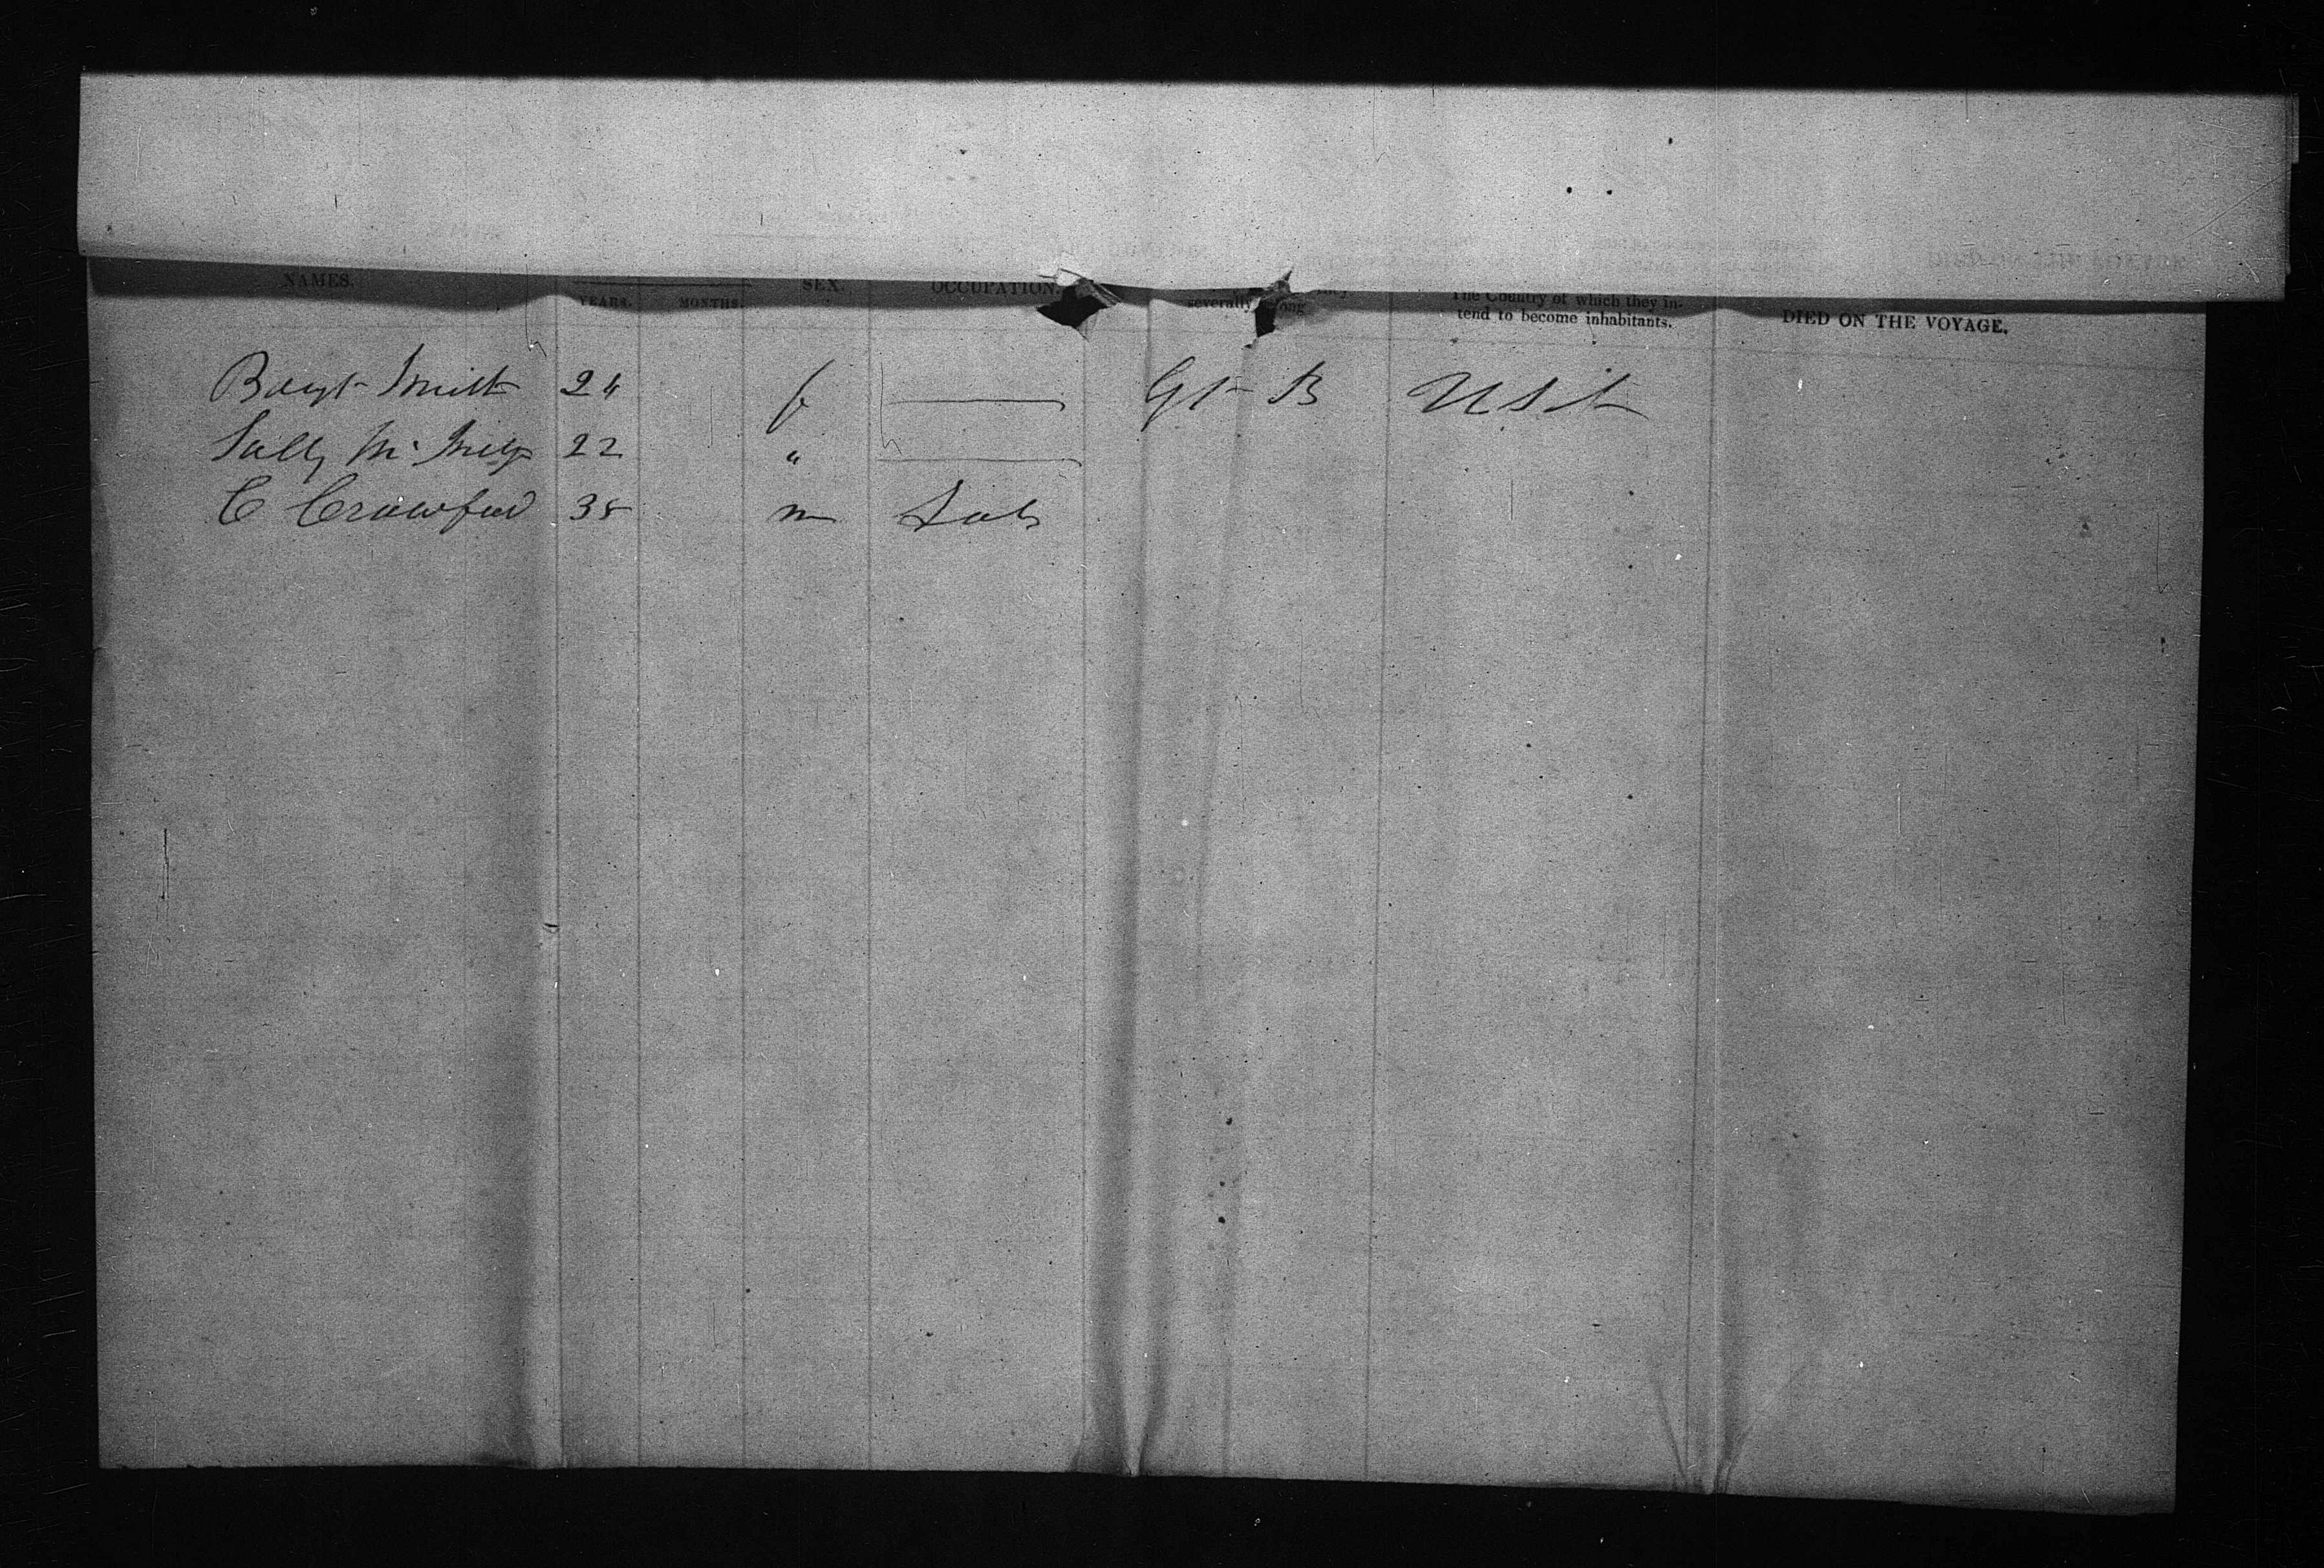 NAMES. YEARS. MONTHS. SEX. OCCUPATION. severally The Country of which they in-
tend to become inhabitants. DIED ON THE VOYAGE.
24 f Gt B USt
Sally 22 "
C Crawford 35 m Lab